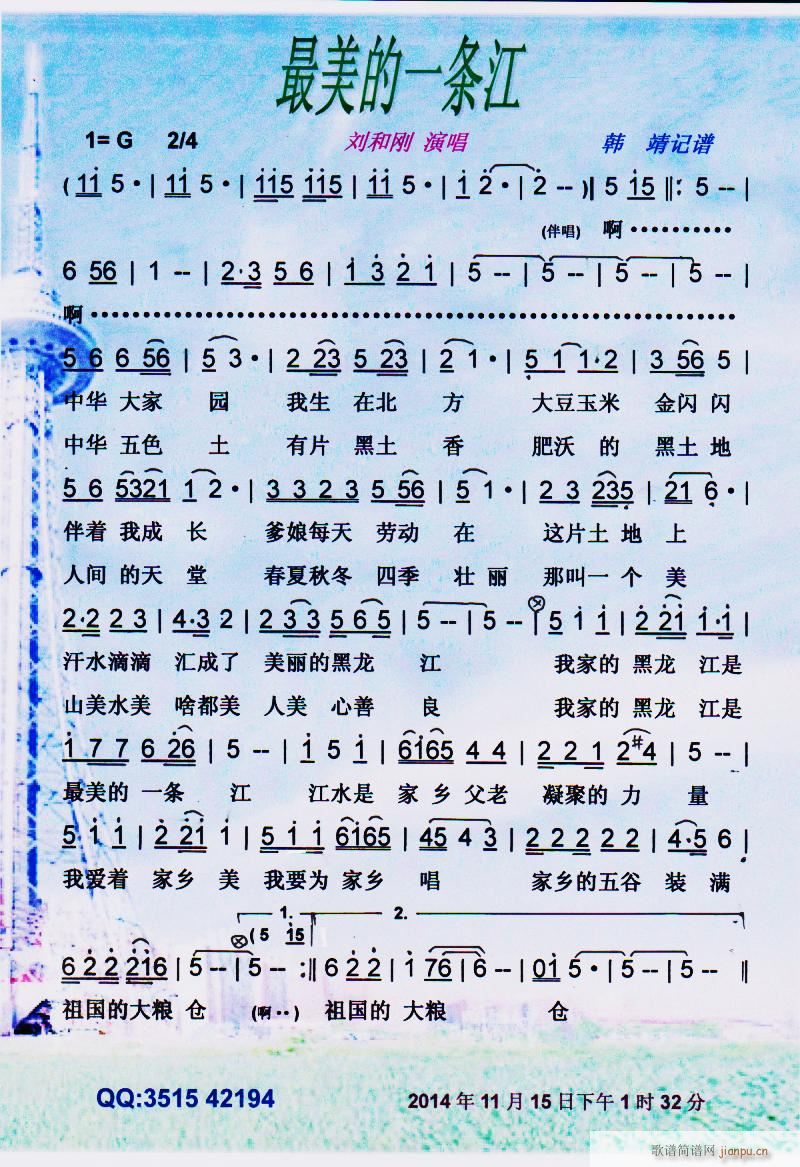 最美的一条江
1= G 2/4 刘和刚 演唱 韩 靖记谱
( 11 5 · | 11 5 · | 115 115 | 11 5 · | 1 2 · | 2 -- )| 5 15 ‖: 5 -- |
(伴唱) 啊 ··········
6 56 | 1 -- | 2·3 5 6 | 1 3 2 1 | 5 -- | 5 -- | 5 -- | 5 -- |
啊 ··································
5 6 6 56 | 5 3 · | 2 23 5 23 | 2 1 · | 5 1 1·2 | 3 56 5 |
中华 大家 园 我生 在北 方 大豆玉米 金闪 闪
中华 五色 土 有片 黑土 香 肥沃 的 黑土 地
5 6 5321 | 1 2 · | 3 3 2 3 5 56 | 5 1 · | 2 3 235 | 21 6 · |
伴着 我成 长 爹娘每天 劳动 在 这片土 地 上
人间 的天 堂 春夏秋冬 四季 壮 丽 那叫一 个 美
2·2 2 3 | 4·3 2 | 2 3 3 5 6 5 | 5 -- | 5 -- | 5 1 1 | 2 21 1·1 |
汗水滴滴 汇成了 美丽的黑龙 江 我家的 黑龙 江是
山美水美 啥都美 人美 心善 良 我家的 黑龙 江是
1 7 7 6 26 | 5 -- | 1 5 1 | 6165 4 4 | 2 2 1 2#4 | 5 -- |
最美的 一条 江 江水是 家 乡父老 凝聚的 力 量
5 1 1 | 2 21 1 | 5 1 1 6165 | 45 4 3 | 2 2 2 2 2 | 4·5 6 |
我爱着 家乡 美 我要为 家乡 唱 家乡的五谷 装 满
1. 2.
( 5 15
6 2 2 216 | 5 -- | 5 -- :‖ 6 2 2 | 1 76 | 6 -- | 01 5 · | 5 -- | 5 -- ‖
祖国的大粮 仓 (啊··) 祖国的 大粮 仓
QQ:3515 42194 2014 年 11 月 15 日下午 1 时 32 分
歌谱简谱网 jianpu.cn